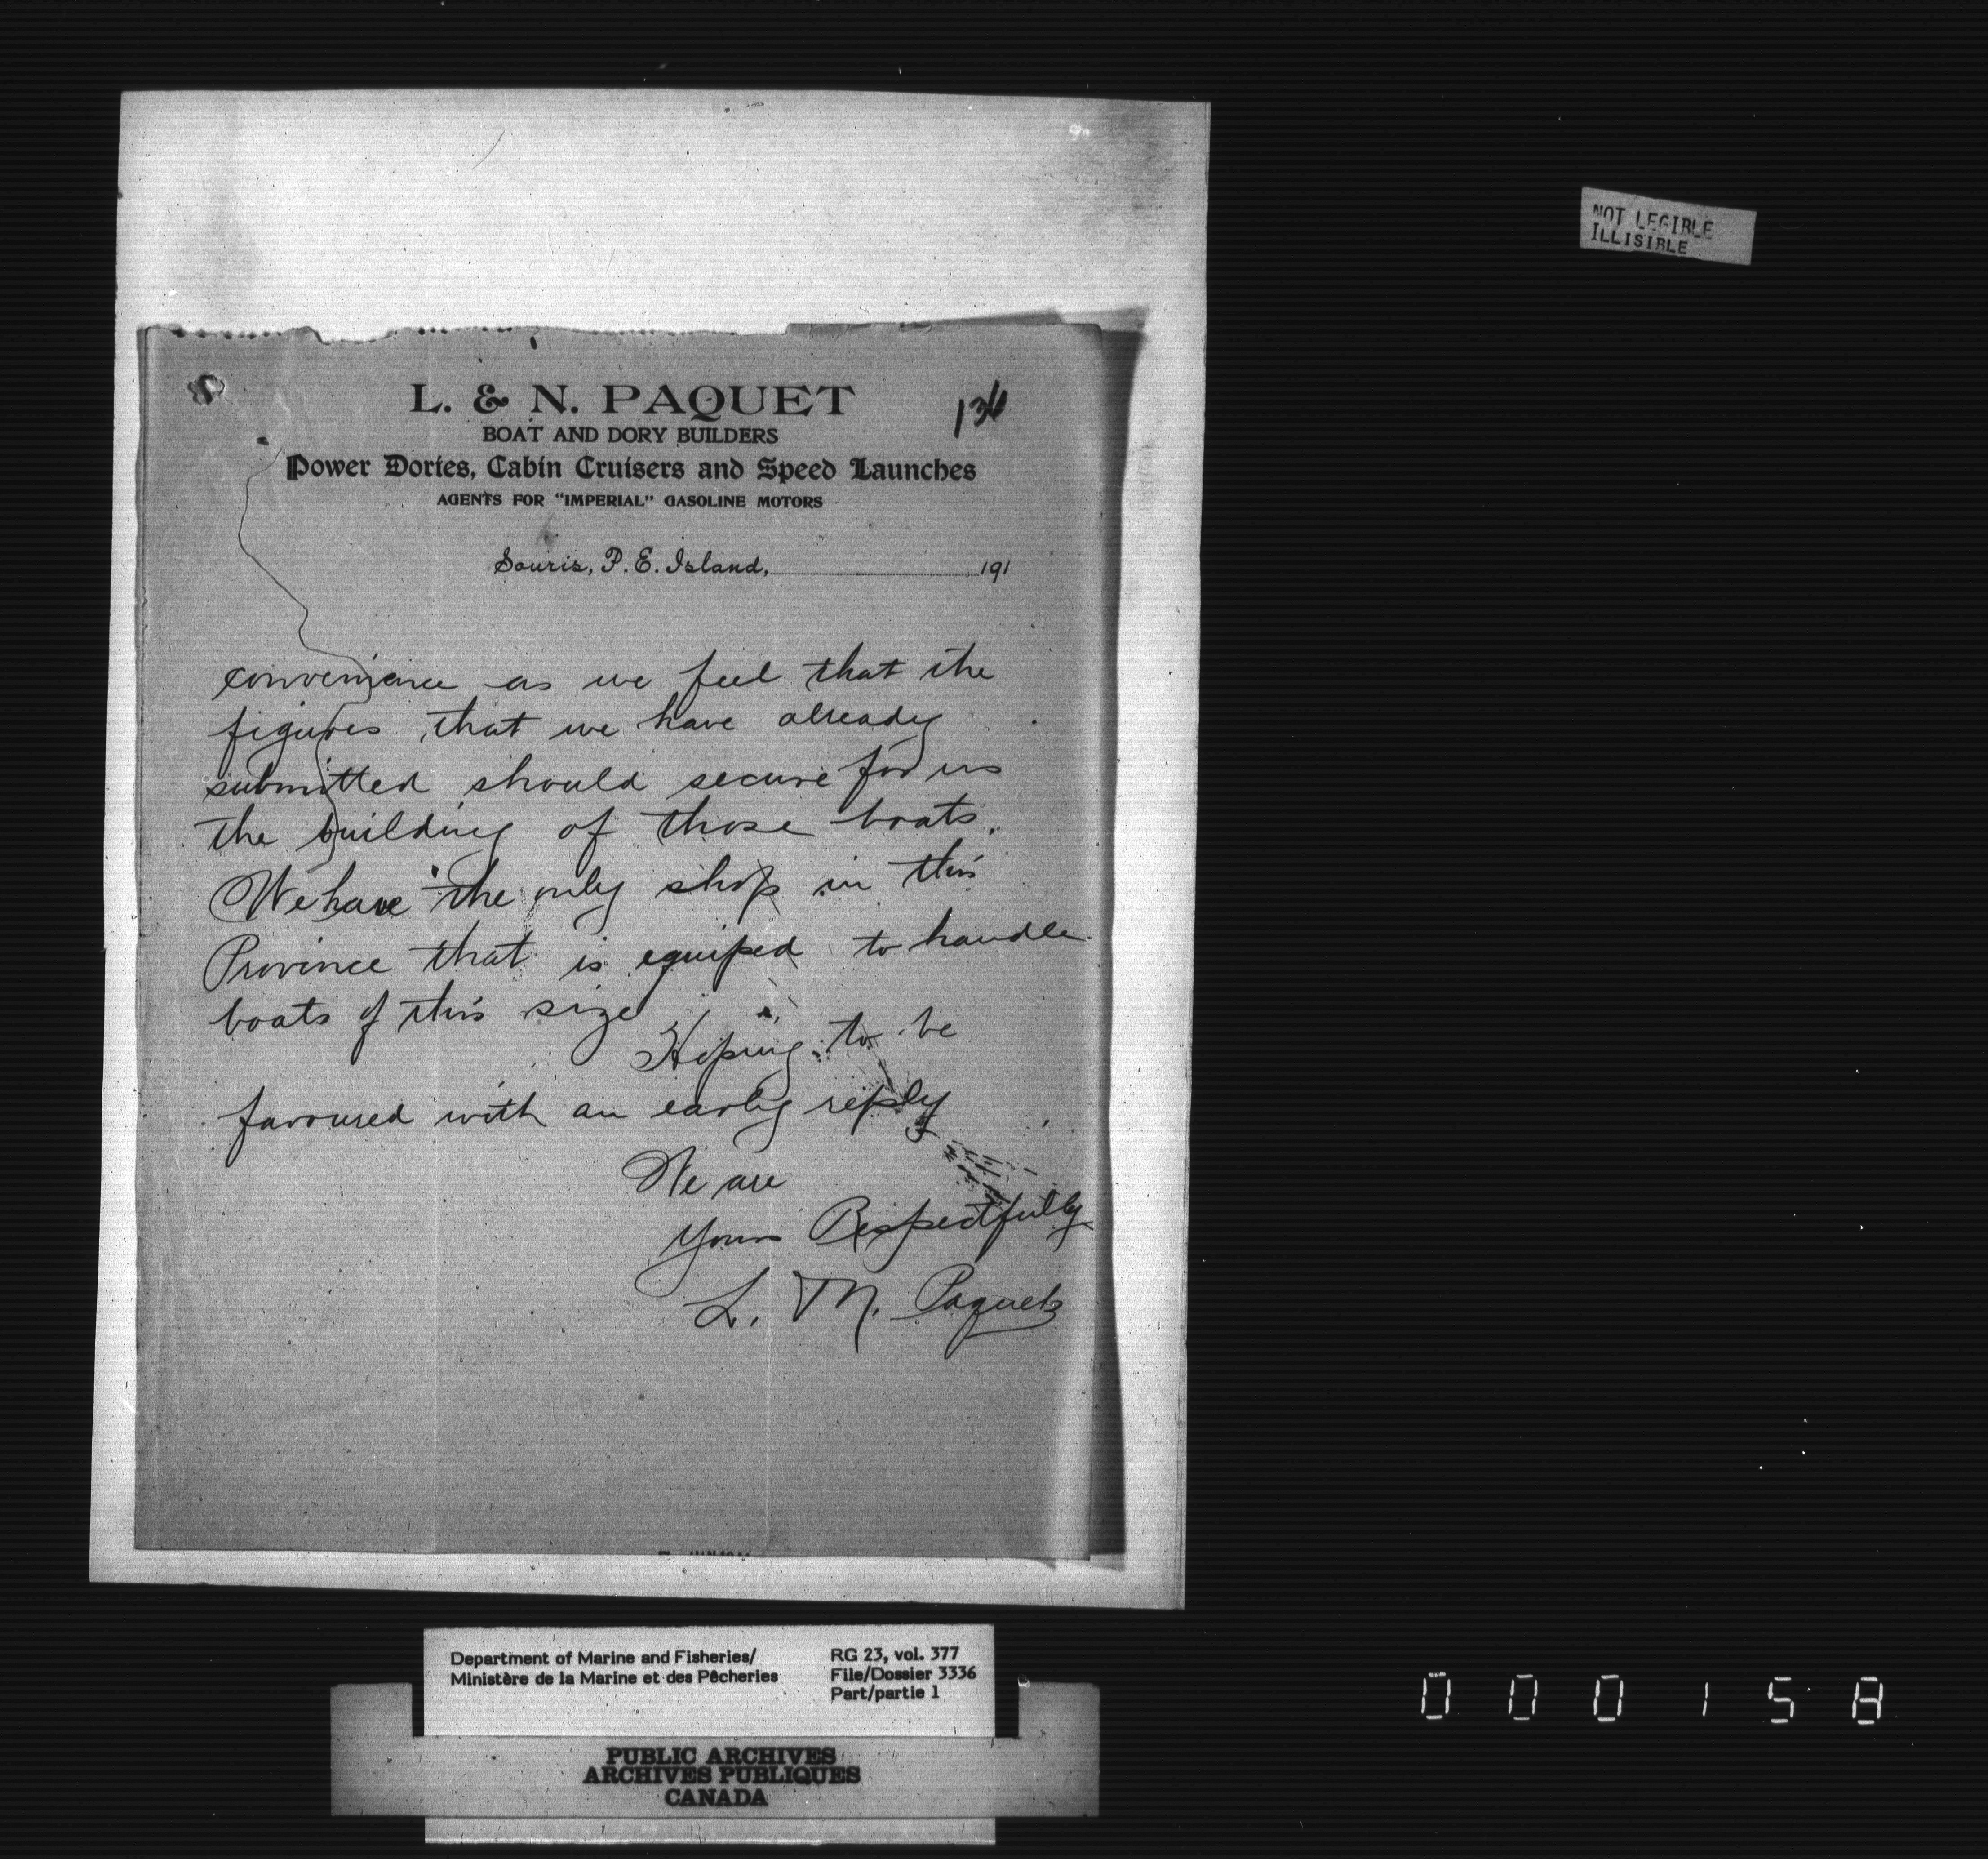 NOT LEGIBLE
ILLISIBLE
L. & N. PAQUET
136
BOAT AND DORY BUILDERS
Power Dories, Cabin Cruisers and Speed Launches
AGENTS FOR "IMPERIAL" GASOLINE MOTORS
Souris, P. E. Island, 191
convenience as we feel that the
figures that we have already
submitted should secure for us
the building of those boats.
We have the only shop in this
Province that is equiped to handle
boats of this size
Hoping to be
favoured with an early reply
We are
Yours Respectfully
L. N. Paquet
Department of Marine and Fisheries/
Ministère de la Marine et des Pêcheries
RG 23, vol. 377
File/Dossier 3336
Part/partie 1
PUBLIC ARCHIVES
ARCHIVES PUBLIQUES
CANADA
000158